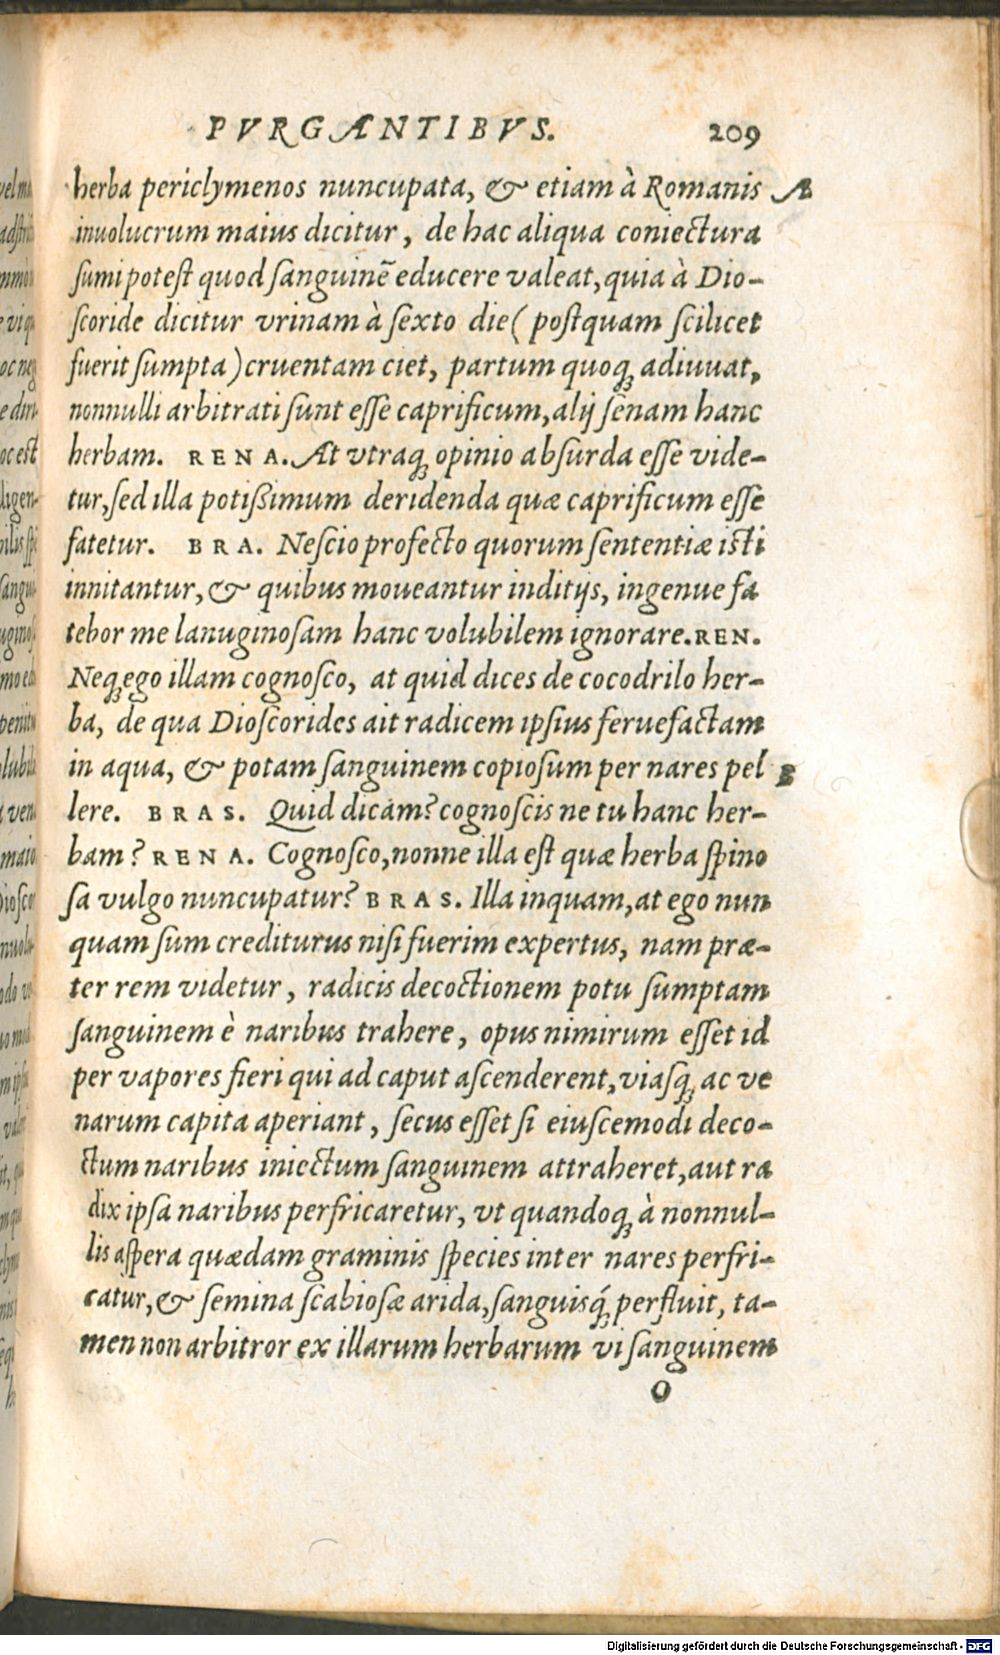 PVRGANTIBVS. 209
herba periclymenos nuncupata, & etiam à Romanis A
inuolucrum maius dicitur, de hac aliqua coniectura
sumi potest quod sanguinē educere valeat, quia à Dio-
scoride dicitur vrinam à sexto die (postquam scilicet
fuerit sumpta) cruentam ciet, partum quoq; adiuuat,
nonnulli arbitrati sunt esse caprificum, alij senam hanc
herbam. RENA. At vtraq; opinio absurda esse vide-
tur, sed illa potißimum deridenda quæ caprificum esse
fatetur. BRA. Nescio profecto quorum sententiæ isti
innitantur, & quibus moueantur inditijs, ingenue fa
tebor me lanuginosam hanc volubilem ignorare. REN.
Neq; ego illam cognosco, at quid dices de cocodrilo her-
ba, de qua Dioscorides ait radicem ipsius feruefactam
in aqua, & potam sanguinem copiosum per nares pel B
lere. BRAS. Quid dicam? cognoscis ne tu hanc her-
bam? RENA. Cognosco, nonne illa est quæ herba spino
sa vulgo nuncupatur? BRAS. Illa inquam, at ego nun
quam sum crediturus nisi fuerim expertus, nam præ-
ter rem videtur, radicis decoctionem potu sumptam
sanguinem è naribus trahere, opus nimirum esset id
per vapores fieri qui ad caput ascenderent, viasq; ac ve
narum capita aperiant, secus esset si eiuscemodi deco-
ctum naribus iniectum sanguinem attraheret, aut ra
dix ipsa naribus perfricaretur, vt quandoq; à nonnul-
lis aspera quædam graminis species inter nares perfri-
catur, & semina scabiosæ arida, sanguisq́; perfluit, ta-
men non arbitror ex illarum herbarum vi sanguinem
O
Digitalisierung gefördert durch die Deutsche Forschungsgemeinschaft - DFG